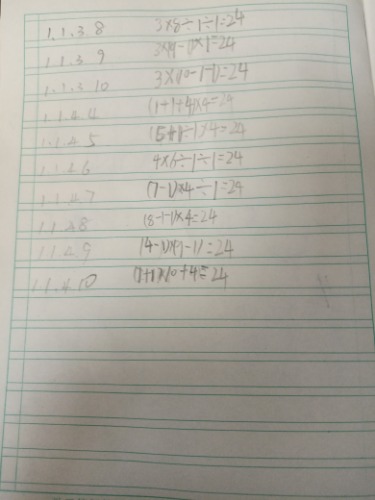 1.1.3.8 3×8÷1÷1=24
1.1.3.9 3×(9-1)×1=24
1.1.3.10 3×(10-1-1)=24
1.1.4.4 (1+1+4)×4=24
1.1.4.5 (5+1)÷1×4=24
1.1.4.6 4×6÷1÷1=24
1.1.4.7 (7-1)×4÷1=24
1.1.4.8 (8-1-1)×4=24
1.1.4.9 (4-1)×(9-1)=24
1.1.4.10 (1+1)×10+4=24